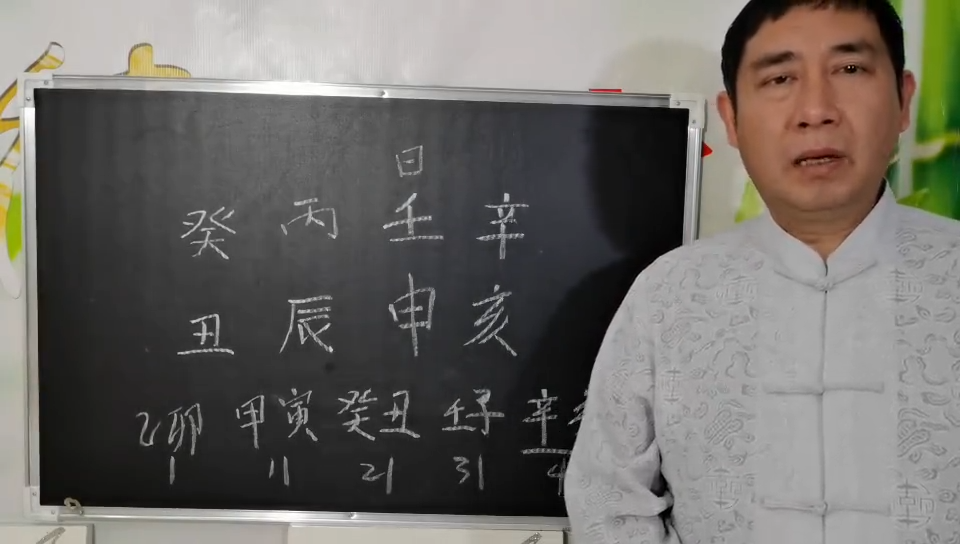 日
癸 丙 壬 辛
丑 辰 申 亥
乙卯 甲寅 癸丑 壬子 辛
1 11 21 31 4